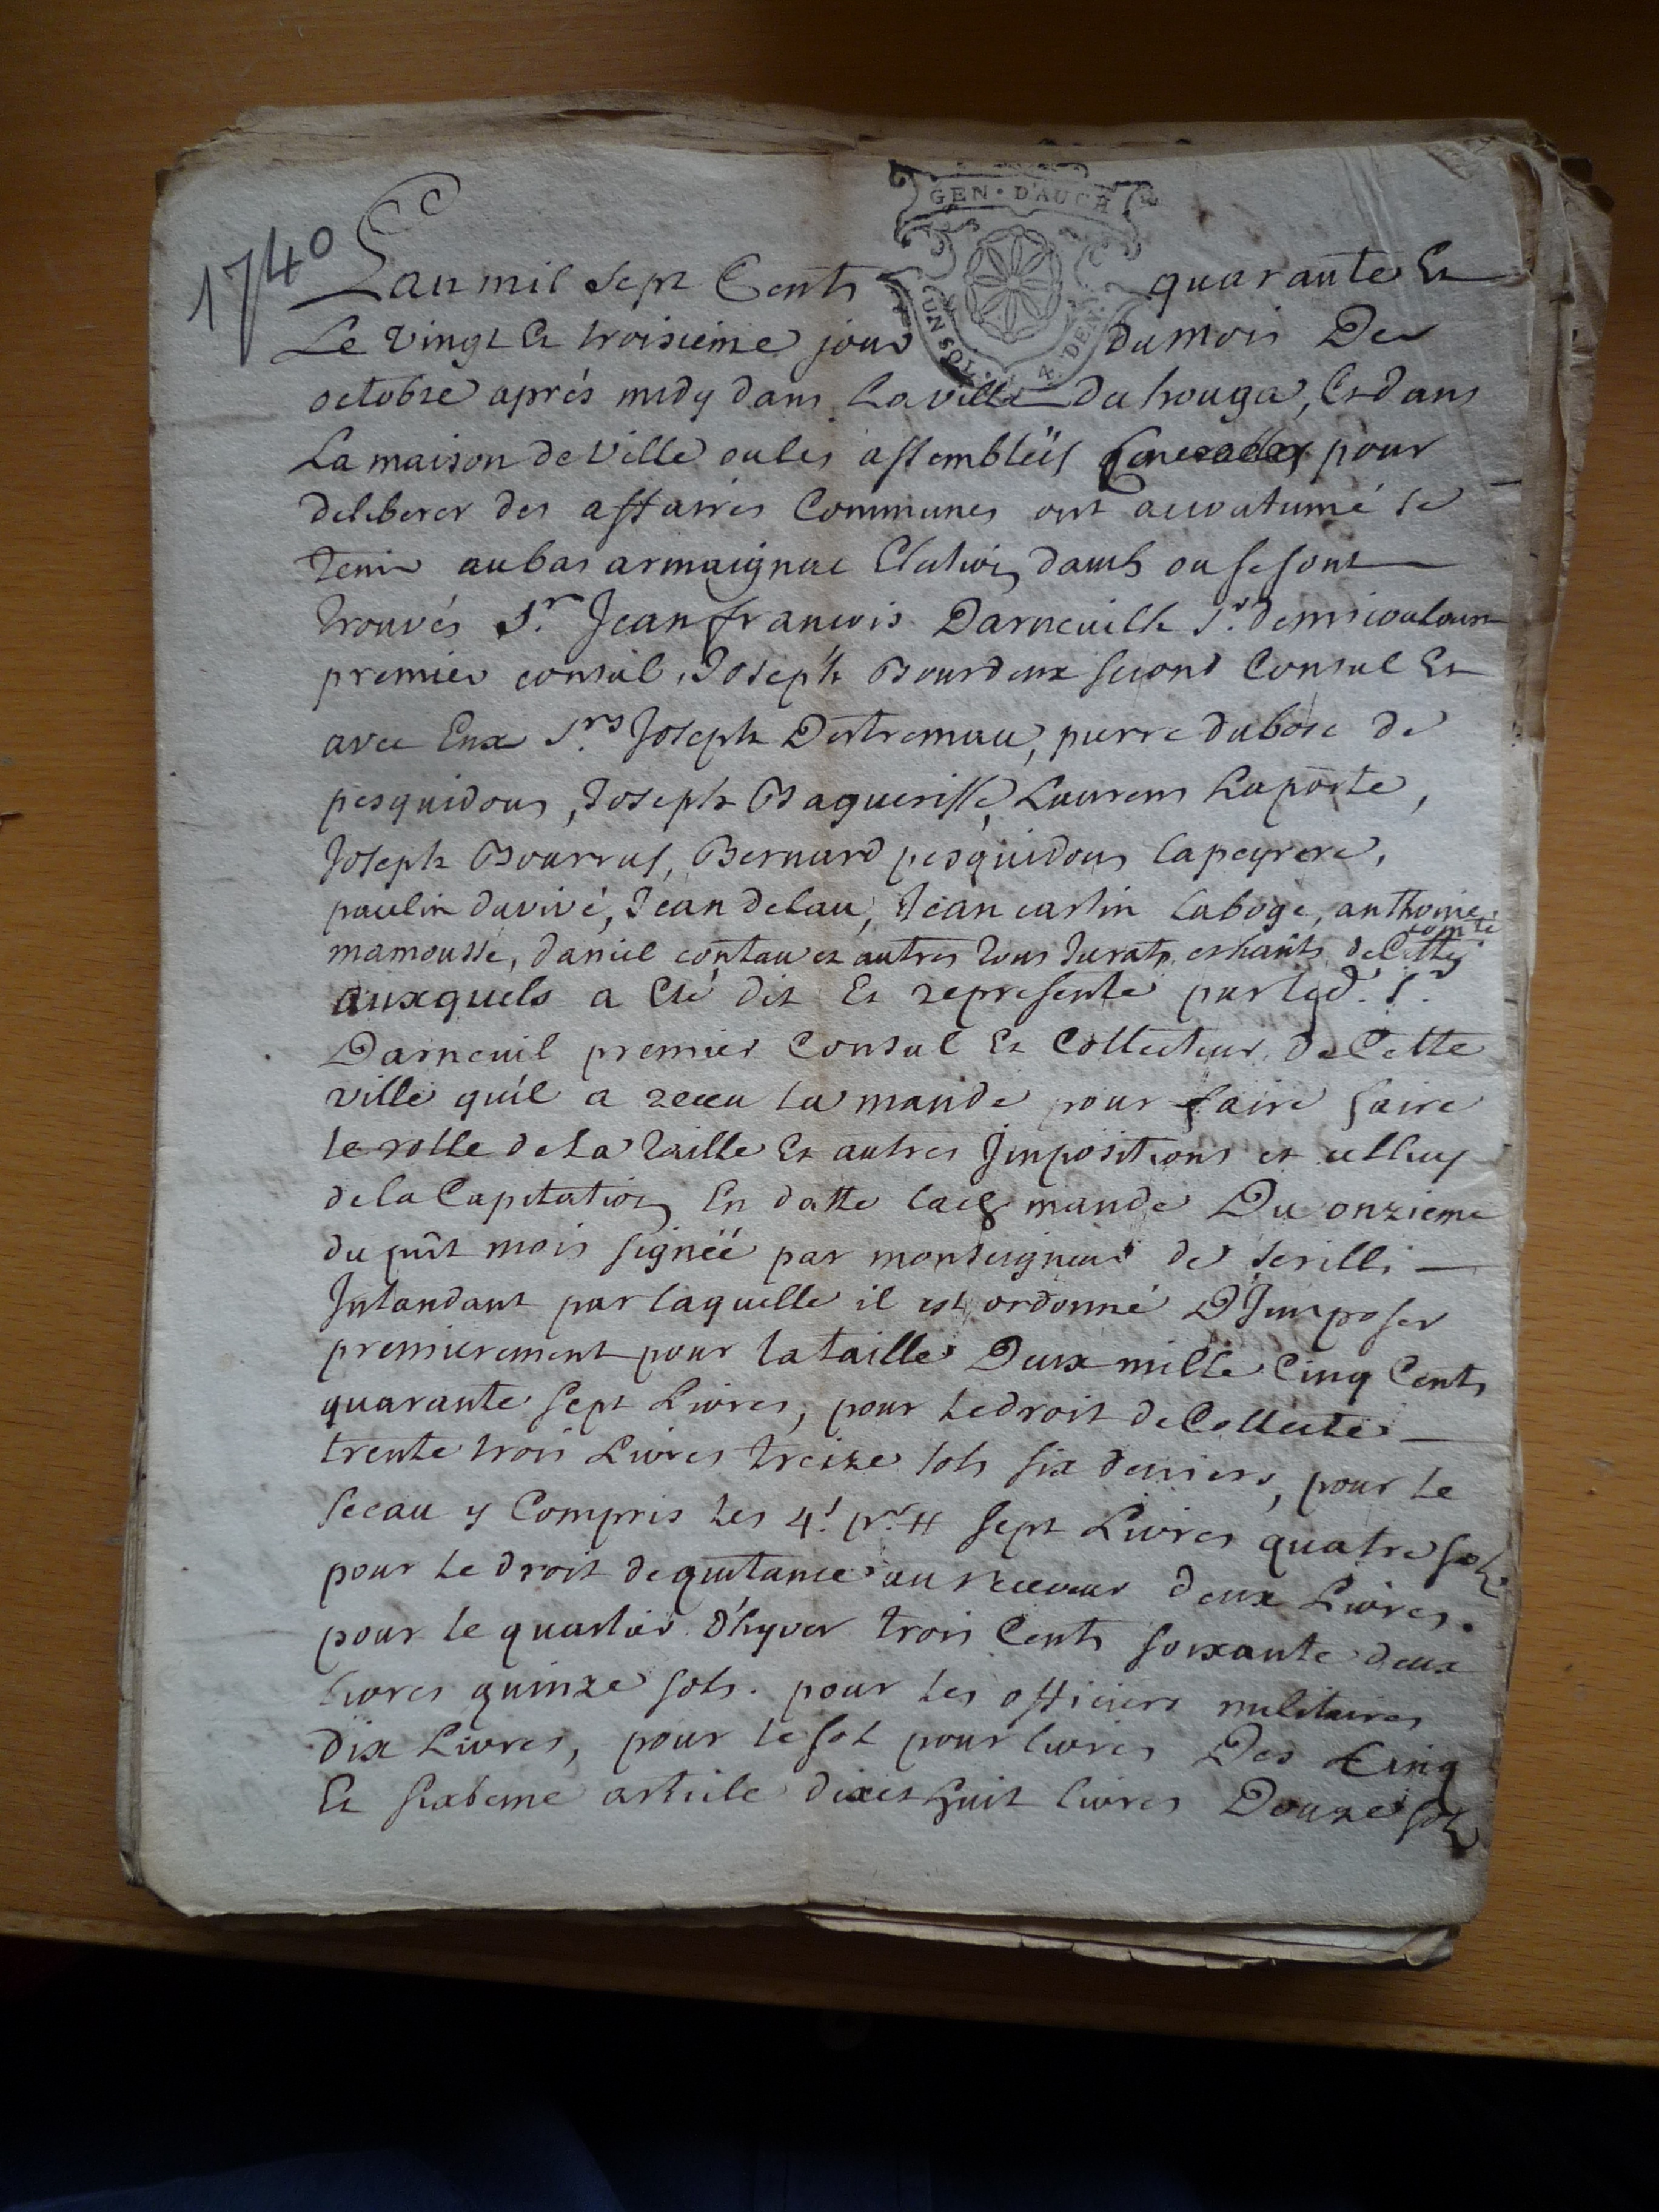 GEN · D'AUCH
1740
Lan mil sept Cents quarante Et
UN SOL · 4 · DEN ·
Le vingt Et troisieme jour du mois De
octobre aprés midy dans La ville du houga, Et dans
La maison de Ville ou les assembleës Generalles pour
deliberer des affaires Communes ont acoutumé se
tenir au bas armaignac Election dauch ou se sont
trouvés Sr. Jean francois Darneuilh Sr. de
premier consul, Joseph Bourdeux second Consul Et
avec Eux Srs. Joseph Destremau, pierre dubosc de
pesquidous, Joseph Baguerisse, Laurens Laporte,
Joseph Bourrus, Bernard pesquidous Lapeyrere,
paulin duvivé, Jean delau, Jean castin Laboge, anthoine
mamousse, daniel contau et autres tous Jurats et hants de Cette comté
auxquels a Eté dit Et representé par led. Sr.
Darneuil premier Consul Et Collecteur de Cette
ville quil a receu La mande pour faire faire
le rolle de La taille Et autres Jmpositions et celluy
de la Capitation En datte lad mande Du onzieme
du pñt mois signeë par monseigneur de serilli
Jntandant par laquelle il est ordonné DJmposer
premierement pour la taille Deux mille Cinq Cents
quarante sept Livres, pour Le droit de Collecte
trente trois Livres treize sols six deniers, pour Le
sceau y Compris Les 4s. pr. ₶ sept Livres quatre sols
pour Le droit de quitance au receveur deux Livres.
pour le quartier d'hyver trois Cents soixante deux
livres quinze sols. pour Les officiers militaires
dix Livres, pour le sol pour livres Des Cinq
Et sixieme article dix et huit livres Douze sols